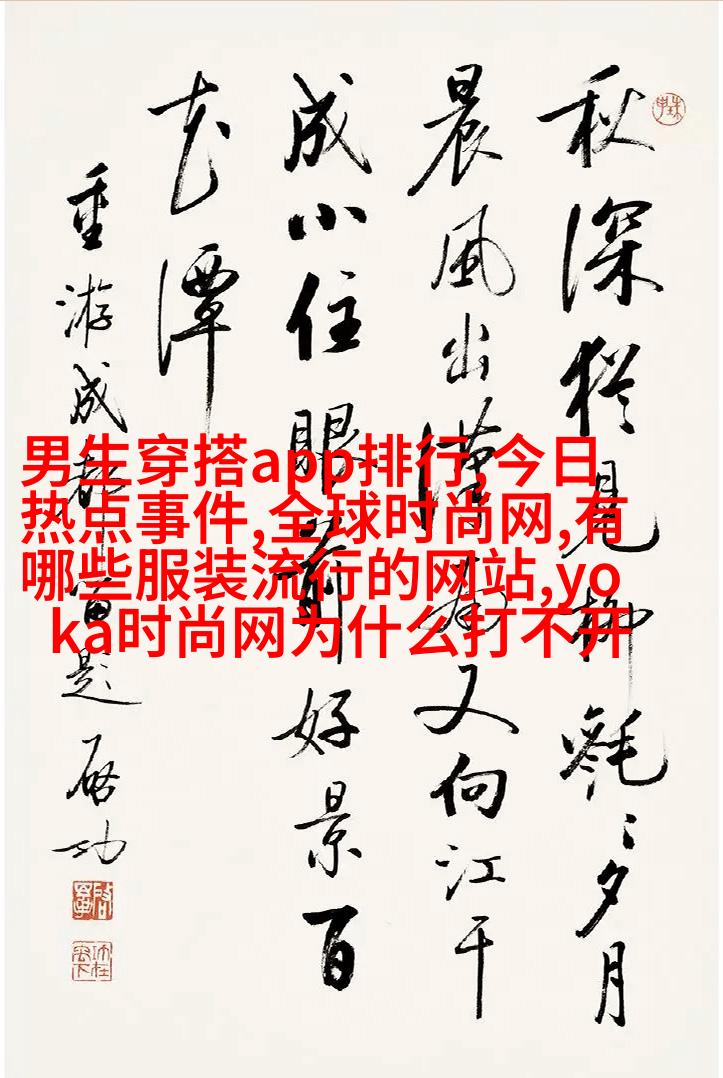 秋深猶見柳毿〻夕月
晨風出漢南又向江干
成小住眼前好景百
花潭
重游成都留題 启功
男生穿搭app排行,今日
热点事件,全球时尚网,有
哪些服装流行的网站,yo
ka时尚网为什么打不开